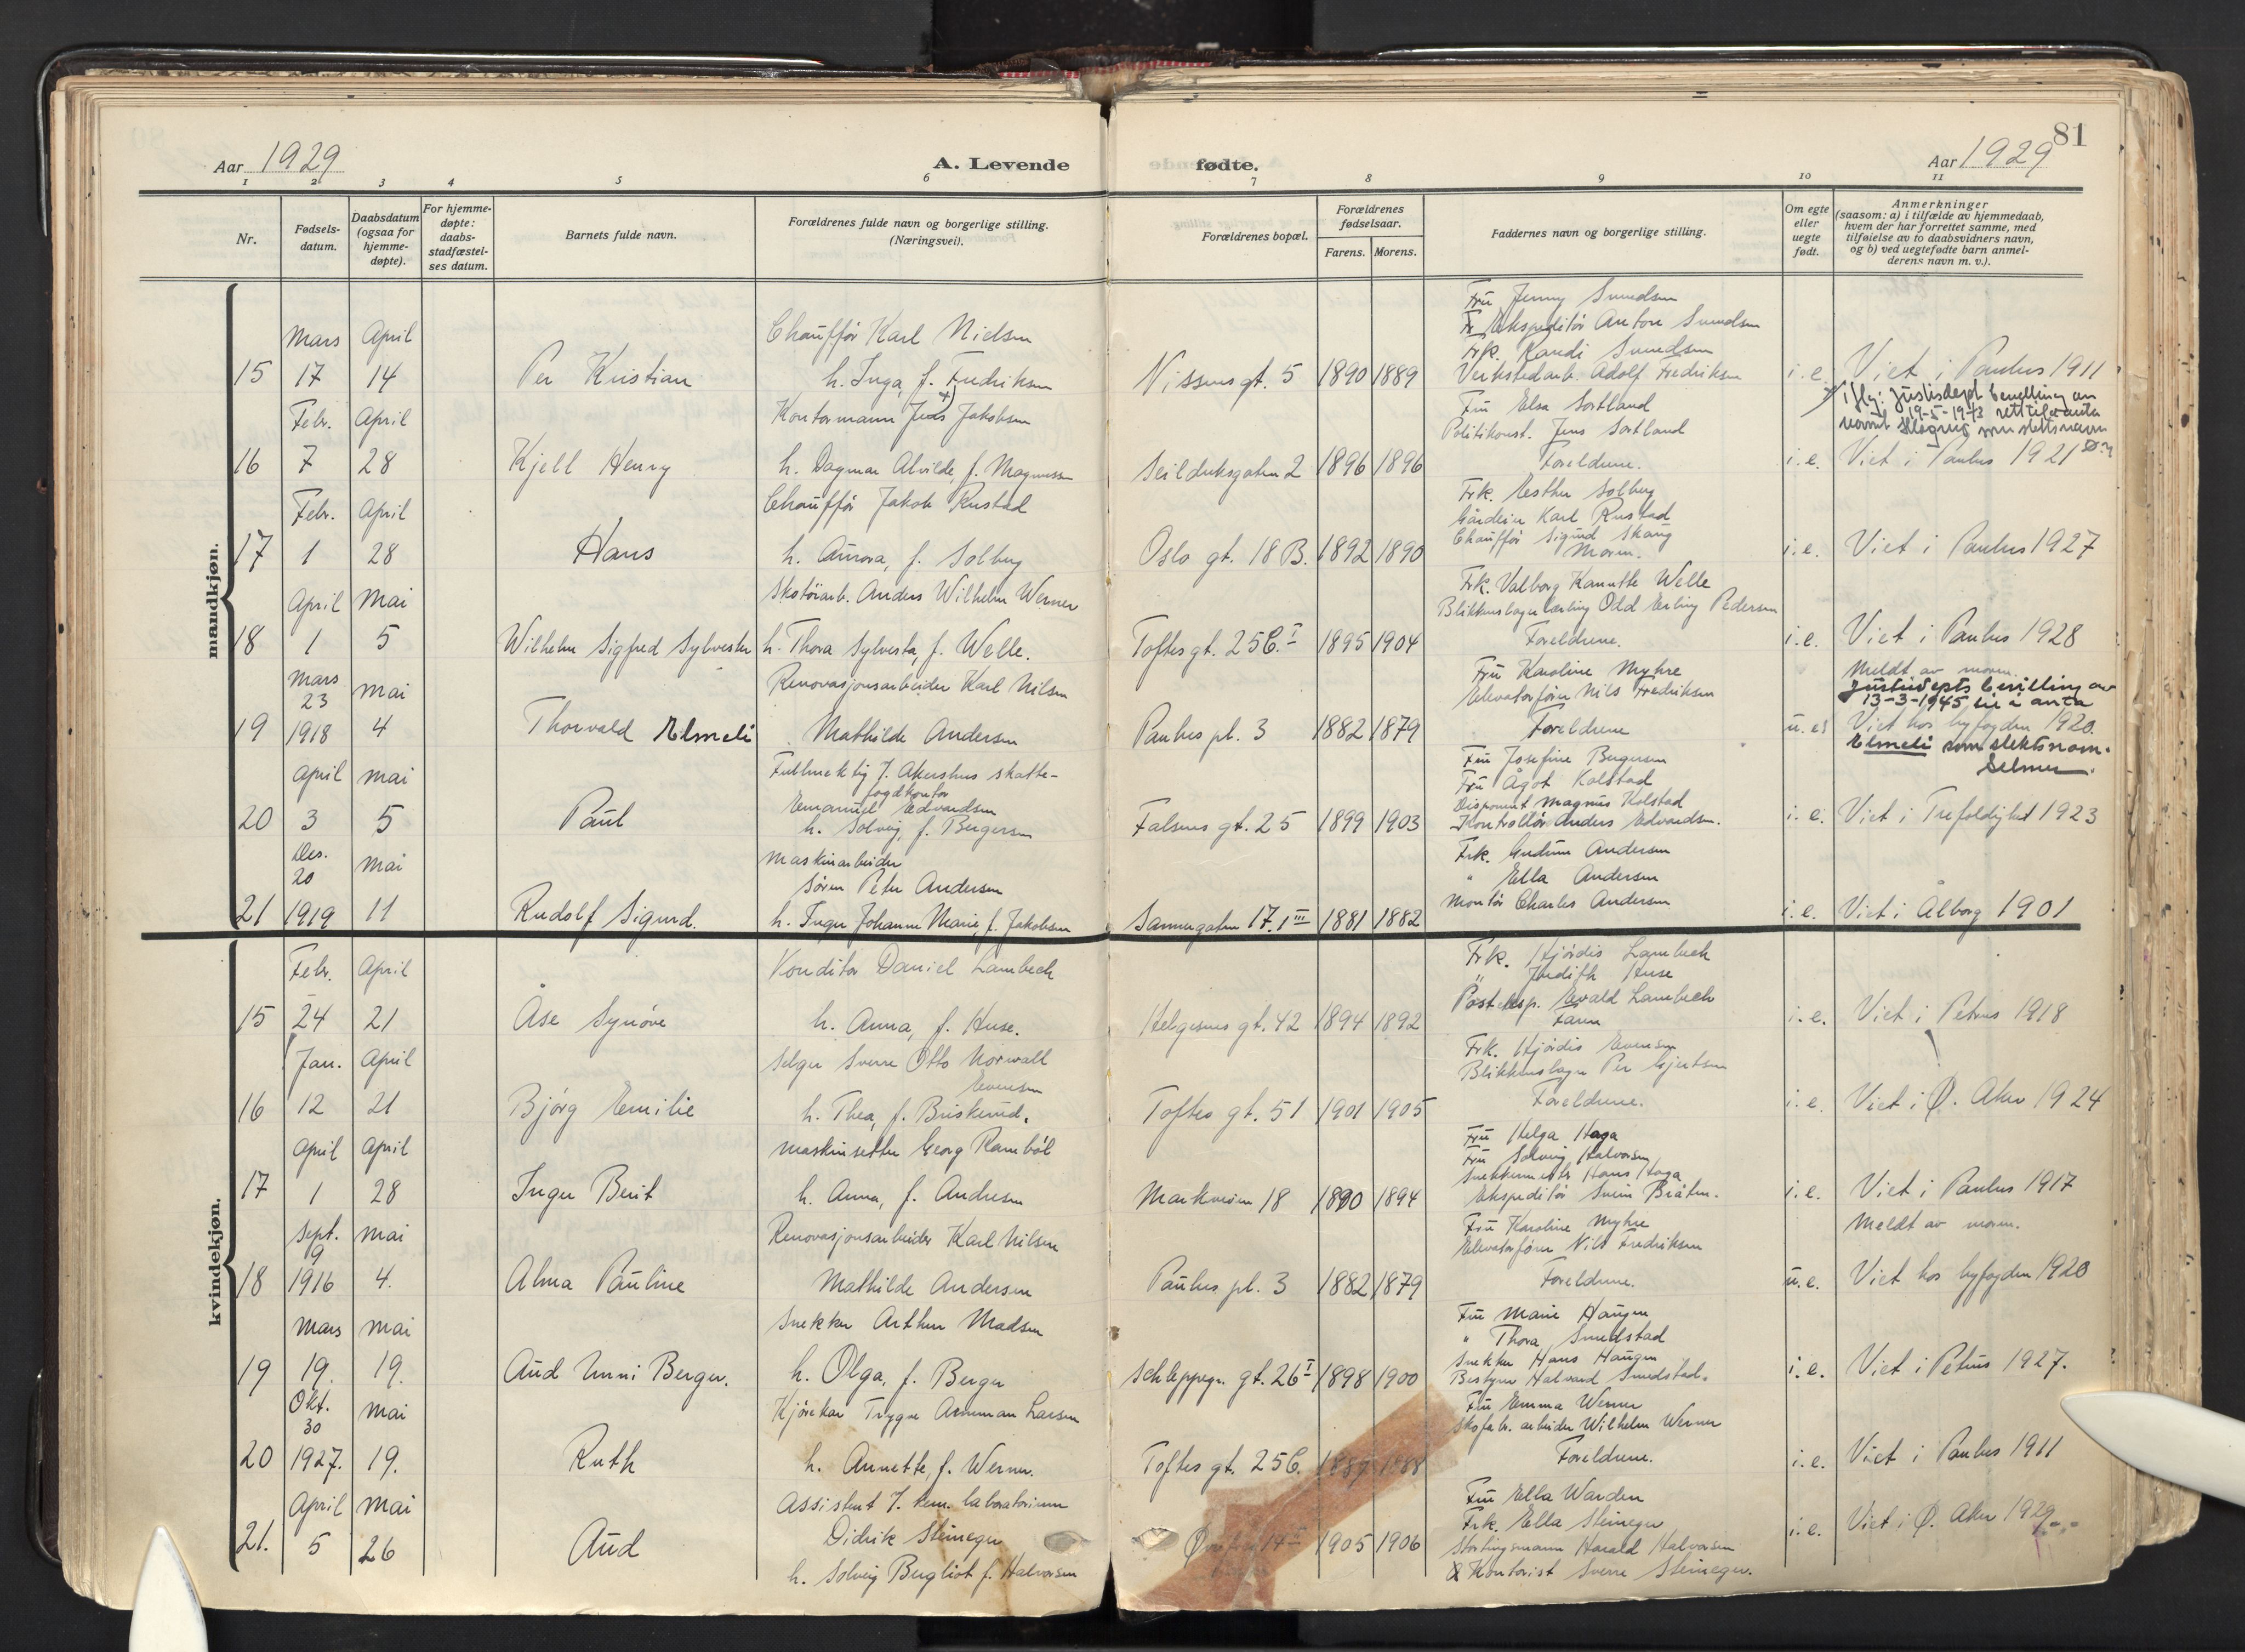 81
Aar 1929
A. Levende
fødte.
Aar 1929
1 2 3 4 5 6 7 8 9 10 11
Nr.
Fødsels-
datum.
Daabsdatum
(ogsaa for
hjemme-
døpte).
For hjemme-
døpte:
daabs-
stadfæstel-
ses datum.
Barnets fulde navn.
Forældrenes fulde navn og borgerlige stilling.
(Næringsvei).
Forældrenes bopæl.
Forældrenes
fødselsaar.
Farens. Morens.
Faddernes navn og borgerlige stilling.
Om egte
eller
uegte
født.
Anmerkninger
(saasom: a) i tilfælde av hjemmedaab,
hvem der har forrettet samme, med
tilføielse av to daabsvidners navn,
og b) ved uegtefødte barn anmel-
derens navn m. v.).
mandkjøn.
Mars April
15 17 14
Per Kristian
Chauffør Karl Nielsen
h. Inga, f. Fredriksen
Nissens gt. 5
1890 1889
Fru Jenny
Ekspeditør Anton
Frk. Randi
Verkstedarb. Adolf Fredriksen
i.e.
Viet i Paulus 1911
Febr. April
16 7 28
Kjell Henry
Kontormann Jens Jakobsen
h. Dagmar Alvilde, f. Magnussen
Seilduksgaten 2
1896 1896
Fru Elsa Sortland
Politikonst. Jens Sortland
Foreldrene.
i.e.
19-5-1943
som slektsnavn
Viet i Paulus 1921
Febr. April
17 1 28
Hans
Chauffør Jakob Rustad
h. Aurora, f. Solberg
Oslo gt. 18 B.
1892 1890
Frk. Esther Solberg
Gårdeier Karl Rustad
Chauffør Sigurd Skaug
Moren.
i.e.
Viet i Paulus 1927
April Mai
18 1 5
Wilhelm Sigfred Sylvester
Skotøiarb. Anders Wilhelm Werner
h. Thora Sylvesta, f. Welle.
Toftes gt. 25 C. I
1895 1904
Frk. Valborg Kanutte Welle
Blikkenslagerlærling Odd Erling Pedersen
Foreldrene.
i.e.
Viet i Paulus 1928
Mars
23 Mai
19 1918 4
Thorvald Elmeli
Renovasjonsarbeider Karl Nilsen
Mathilde Andersen
Paulus pl. 3
1882 1879
Fru Karoline Myhre
Elevatorfører Nils Fredriksen
Foreldrene
u.e.
Meldt av moren.
Justisdepts bevilling av
13-3-1945 til å anta
Viet hos byfogden 1920.
Elmeli som slektsnavn.
Selmer.
April Mai
20 3 5
Paul
Fullmektig v. Akershus skatte-
fogdkontor
Emanuel Edvardsen
h. Solveig, f. Bergersen
Falsens gt. 25
1899 1903
Fru Josefine Bergersen
Fru Ågot Kolstad
Disponent Magnus Kolstad
Kontrollør Anders Edvardsen.
i.e.
Viet i Trefoldighet 1923
Des.
20 Mai
21 1919 11
Rudolf Sigurd.
Maskinarbeider
Søren Peter Andersen
h. Inger Johanne Marie, f. Jakobsen
Sannergaten 17. I III
1881 1882
Frk. Gudrun Andersen
" Ella Andersen
Montør Charles Andersen
i.e.
Viet i Ålborg 1901
kvindekjøn.
Febr. April
15 24 21
Åse Synøve
Konditor Daniel Lambech
h. Anna, f. Huse.
Helgesens gt. 42
1894 1892
Frk. Hjørdis Lambech
" Judith Huse
Posteksp. Evald Lambech
Faren
i.e.
Viet i Petrus 1918
Jan. April
16 12 21
Bjørg Emilie
Selger Sverre Otto Norwall
Evensen
h. Thea, f. Briskerud.
Toftes gt. 51
1901 1905
Frk. Hjørdis Evensen
Blikkenslager Per Gjertsen
Foreldrene.
i.e.
Viet i Ø. Aker 1924
April April
17 1 28
Inger Berit
Maskinsetter Georg Rambøl
h. Anna, f. Andresen
Markveien 18
1890 1894
Fru Helga Haga
Fru Solveig Halvorsen
Snekkermester Hans Haga
Ekspeditør Svein Bråten.
i.e.
Viet i Paulus 1917
Sept. Mai
9
18 1916 4.
Alma Pauline
Renovasjonsarbeider Karl Nilsen
Mathilde Andersen
Paulus pl. 3
1882 1879
Fru Karoline Myhre
Elevatorfører Nils Fredriksen
Foreldrene.
u.e.
Meldt av moren.
Viet hos byfogden 1920
Mars Mai
19 19. 19.
Aud Unni Berger.
Snekker Arthur Madsen
h. Olga, f. Berger
Schleppegr. gt. 26 I
1898 1900
Fru Marie Haugen
" Thora Smedstad
Snekker Hans Haugen
Bestyrer Halvard Smedstad.
i.e.
Viet i Petrus 1927.
Okt.
30 Mai
20 1927. 19.
Ruth
Kjørekar Trygve Larsen
h. Annette, f. Werner.
Toftes gt. 25 C.
1889 1888
Fru Emma Werner
Skofabr. arbeider Wilhelm Werner
Foreldrene.
i.e.
Viet i Paulus 1911
April Mai
21. 5 26
Aud
Assistent v. kem. laboratorium
Didrik Steineger
h. Solveig Bergliot f. Halvorsen
14 II
1905 1906
Fru Ella Warden
Frk. Ella Steineger
Stortingsmann Harald Halvorsen
Kontorist Sverre Steineger.
i.e.
Viet i Ø. Aker 1929